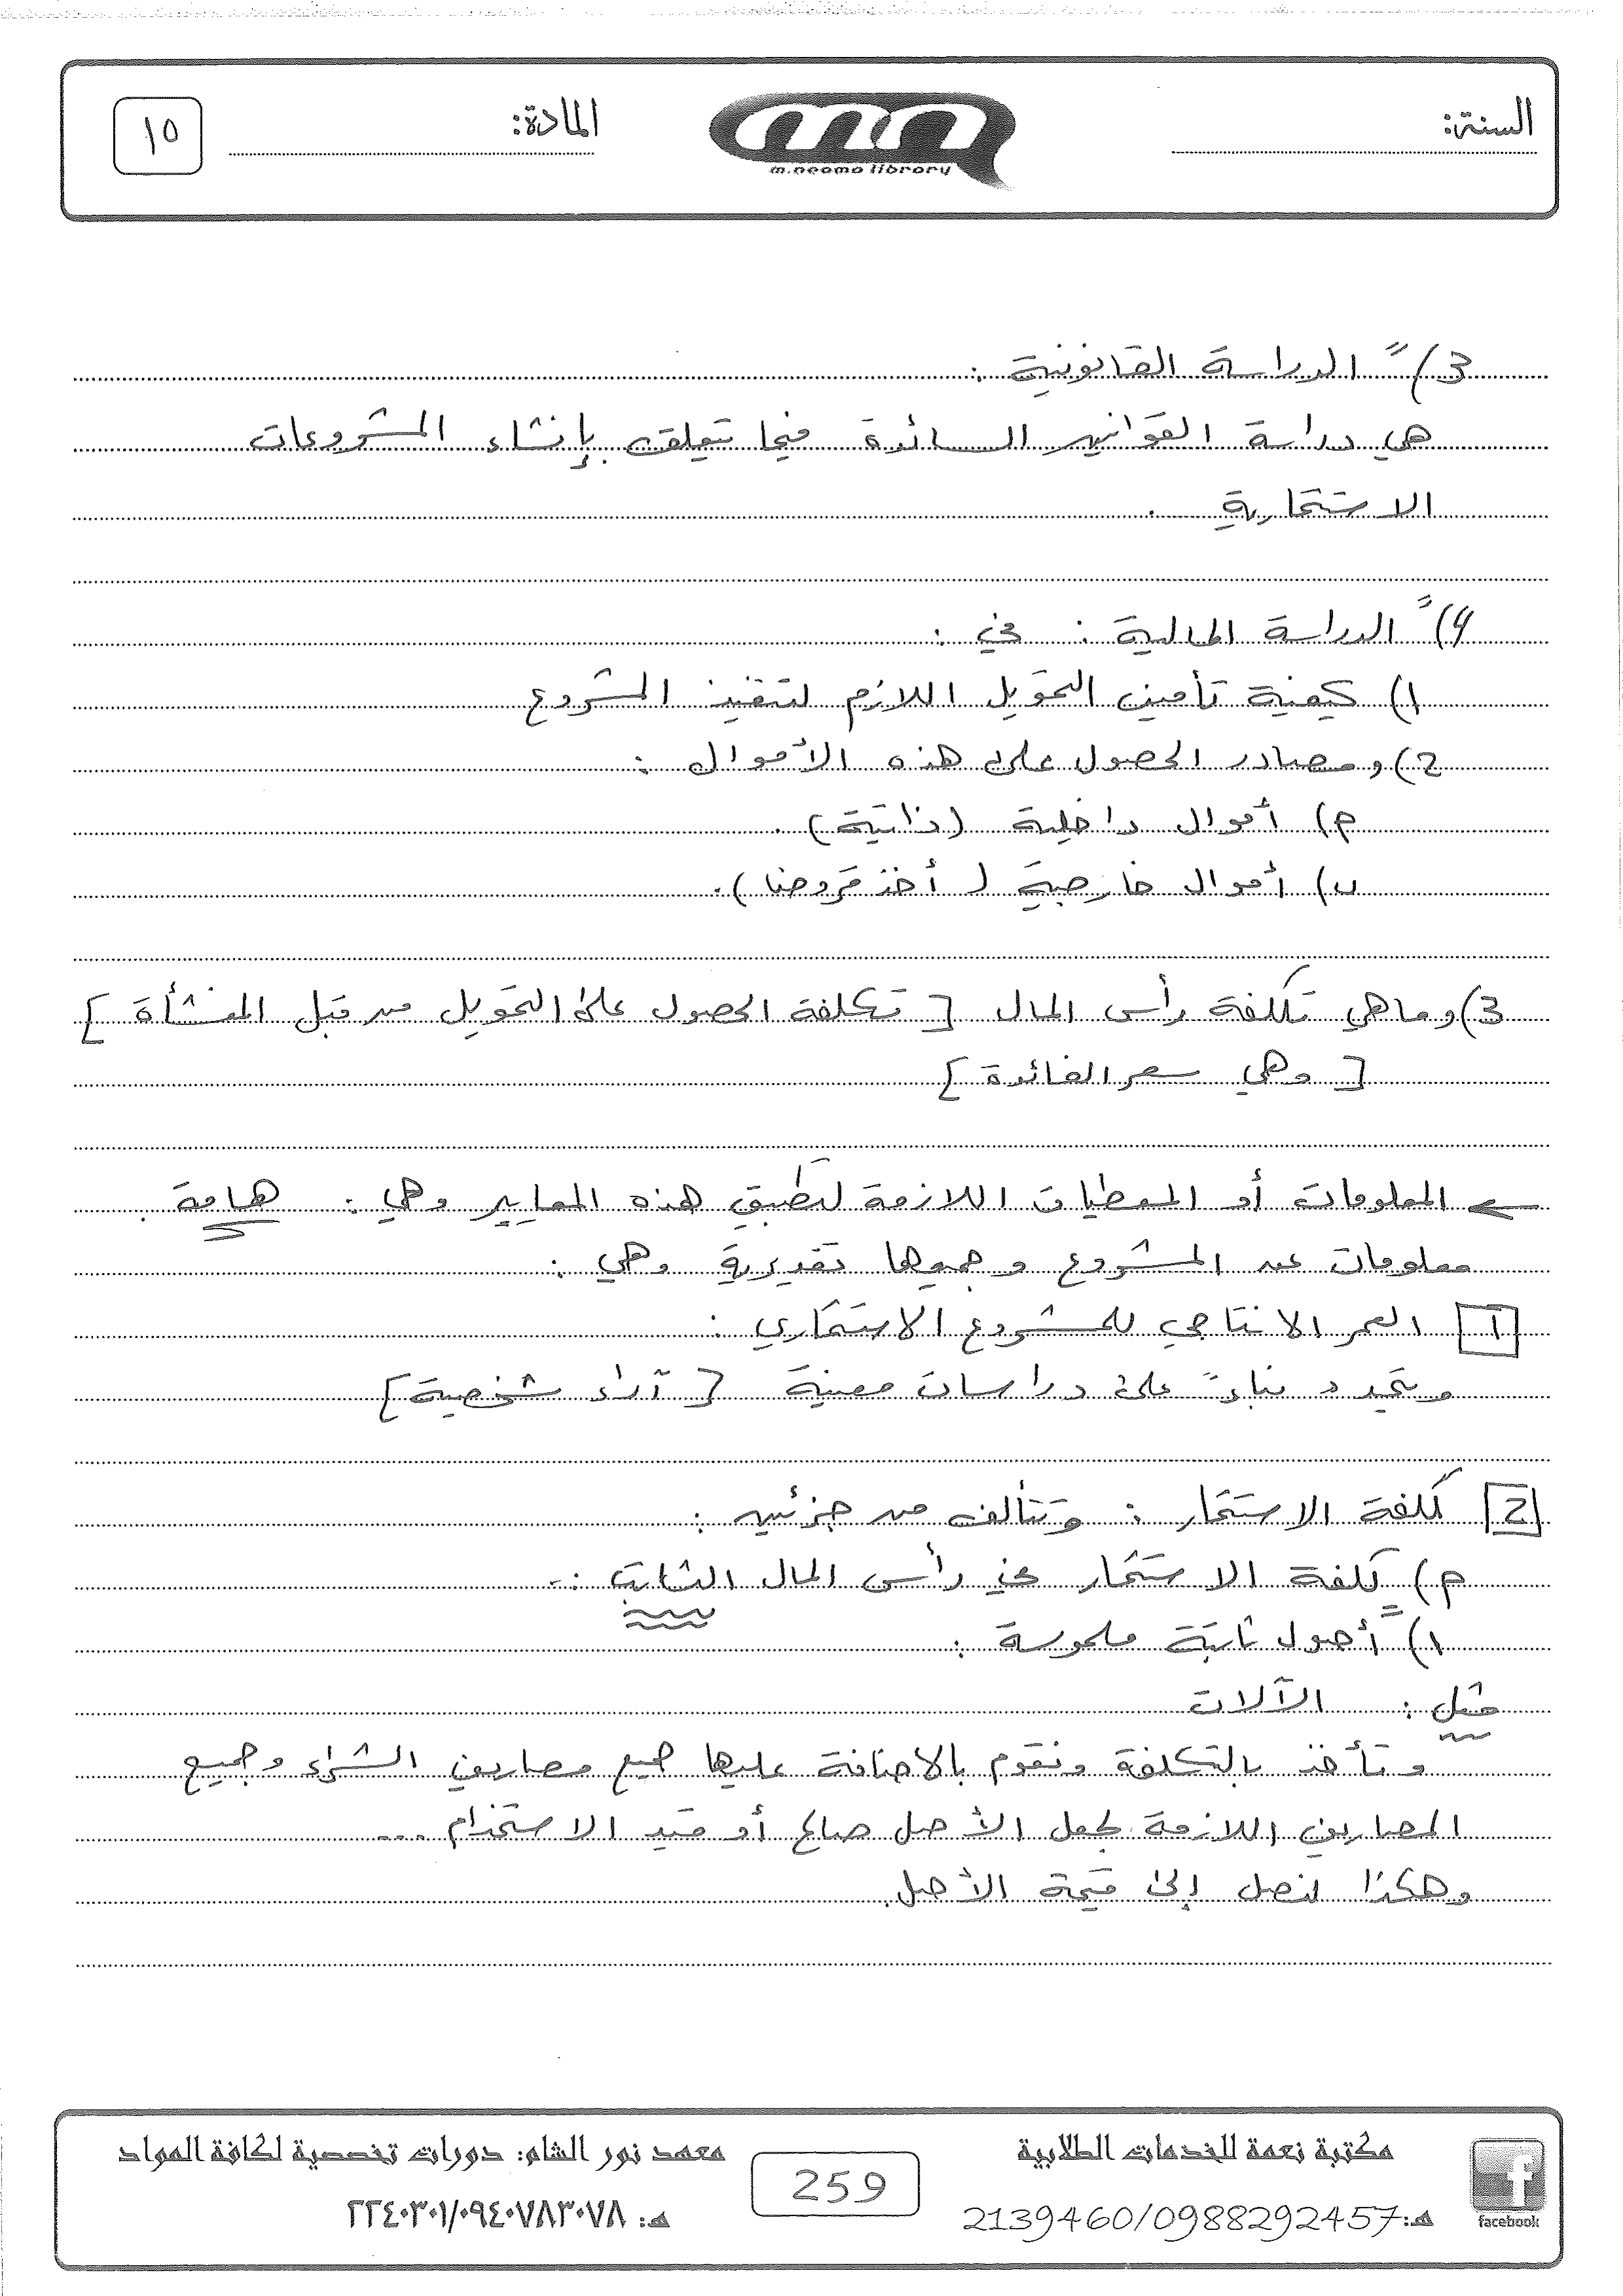 السنة:
m.neama library
المادة:
١٥
3) ً الدراسة القانونية :
هي دراسة القوانين السائدة فيما تتعلق بإنشاء المشروعات
الاستثمارية .
4) ً الدراسة المالية : في :
١) كيفية تأمين التمويل اللازم لتنفيذ المشروع
2) ومصادر الحصول على هذه الأموال :
م) أموال داخلية (ذاتية) .
ب) أموال خارجية ( أخذ قروضنا ) .
3) وما هي تكلفة رأس المال [ تكلفة الحصول على التمويل من قبل المنشأة ]
[ وهي سعر الفائدة ]
← المعلومات أو المعطيات اللازمة لتطبيق هذه المعايير وهي : هامة .
معلومات عن المشروع وجميعها تقديرية وهي :
1 العمر الانتاجي للمشروع الاستثماري :
ويتحدد بناءً على دراسات معينة [ آراء شخصية ]
2 كلفة الاستثمار : وتتألف من جزئين :
م) كلفة الاستثمار في رأس المال الثابت :-
١) ً أصول ثابتة ملموسة :
مثل : الآلات
وتأخذ بالتكلفة ونقوم بالاضافة عليها جميع مصاريف الشراء وجميع
المصاريف اللازمة لجعل الأصل صالح أو قيد الاستخدام ...
وهكذا لنصل إلى قيمة الأصل .
facebook
مكتبة نعمة للخدمات الطلابية
هـ: 2139460/0988292457
259
معهد نور الشام: دورات تخصصية لكافة المواد
هـ: ٢٢٤٠٣٠١/٠٩٤٠٧٨٣٠٧٨